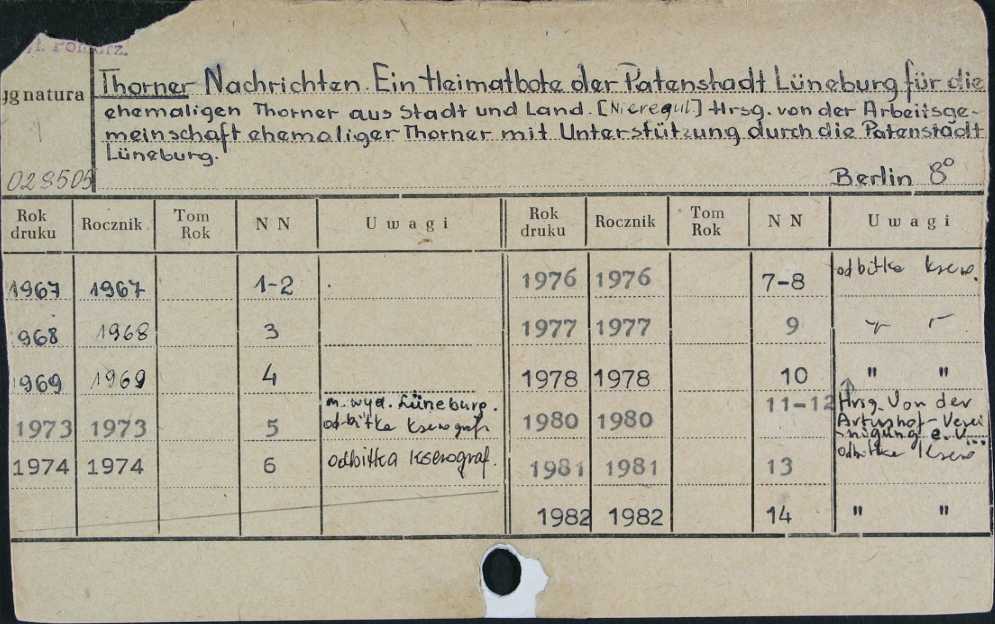 Pomorz.
ygnatura
Thorner Nachrichten. Ein Heimatbote der Patenstadt Lüneburg für die
ehemaligen Thorner aus Stadt und Land. [Nieregul.] Hrsg. von der Arbeitsge-
meinschaft ehemaliger Thorner mit Unterstützung durch die Patenstadt
Lüneburg.
028505 Berlin 8°
Rok druku Rocznik Tom Rok NN Uwagi Rok druku Rocznik Tom Rok NN Uwagi
1967 1967 1-2 1976 1976 7-8 odbitka ksero.
968 1968 3 1977 1977 9
1969 1969 4 1978 1978 10 " "
m. wyd. Lüneburg. 11-12 Hrsg. von der
1973 1973 5 odbitka kserograf. 1980 1980 Artushof-Verei
nigung e.V.
1974 1974 6 odbitka kserograf. 1981 1981 13 odbitka ksero
1982 1982 14 " "